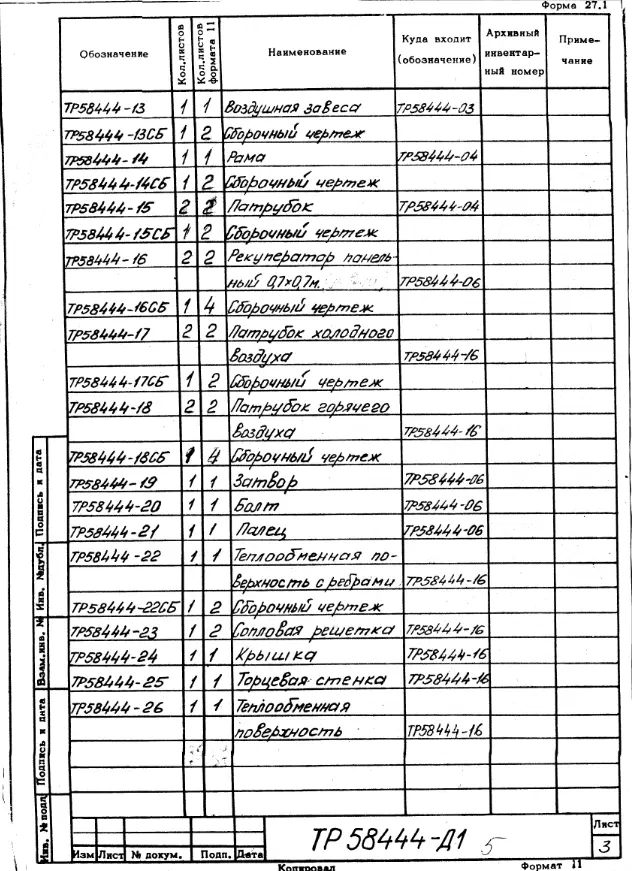 Форма 27.1
Обозначение Кол.листов Кол.листов формата 11 Наименование Куда входит (обозначение) Архивный инвентарный номер Примечание
ТР58444-13 1 1 Воздушная завеса ТР58444-03
ТР58444-13СБ 1 2 Сборочный чертеж
ТР58444-14 1 1 Рама ТР58444-04
ТР58444-14СБ 1 2 Сборочный чертеж
ТР58444-15 2 2 Патрубок ТР58444-04
ТР58444-15СБ 1 2 Сборочный чертеж
ТР58444-16 2 2 Рекуператор панель-
ный 0,7х0,7м. ТР58444-06
ТР58444-16СБ 1 4 Сборочный чертеж
ТР58444-17 2 2 Патрубок холодного
воздуха ТР58444-16
ТР58444-17СБ 1 2 Сборочный чертеж
ТР58444-18 2 2 Патрубок горячего
воздуха ТР58444-16
ТР58444-18СБ 1 4 Сборочный чертеж
ТР58444-19 1 1 Затвор ТР58444-06
ТР58444-20 1 1 Болт ТР58444-06
ТР58444-21 1 1 Палец ТР58444-06
ТР58444-22 1 1 Теплообменная по-
верхность с ребрами ТР58444-16
ТР58444-22СБ 1 2 Сборочный чертеж
ТР58444-23 1 2 Сопловая решетка ТР58444-16
ТР58444-24 1 1 Крышка ТР58444-16
ТР58444-25 1 1 Торцевая стенка ТР58444-16
ТР58444-26 1 1 Теплообменная
поверхность ТР58444-16
Инв. №подл Подпись и дата Взам.инв. № Инв. №дубл. Подпись и дата
Изм Лист № докум. Подп. Дата
ТР 58444-Д1 5
Лист
3
Копировал Формат 11